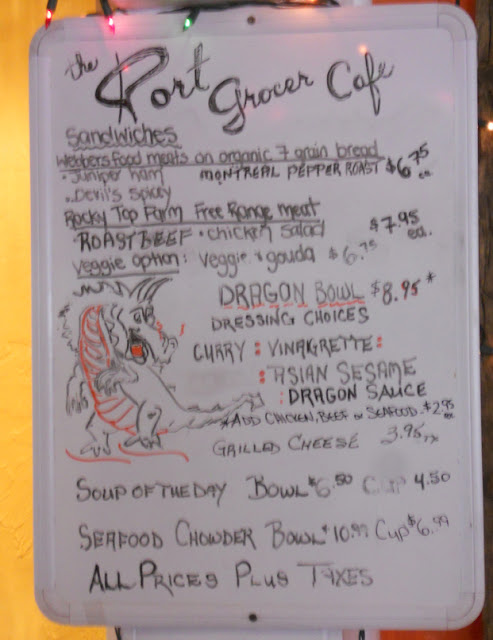 the Port Grocer Cafe
Sandwiches
Webbers Food meats on organic 7 grain bread
• Juniper ham MONTREAL PEPPER ROAST $6.75 ea
• Devil's Spicy
Rocky Top Farm Free Range meat
• ROAST BEEF • chicken salad $7.95 ea.
Veggie option: veggie & gouda $6.75
DRAGON BOWL $8.95*
DRESSING CHOICES
CURRY : VINAGRETTE :
: ASIAN SESAME
: DRAGON SAUCE
* ADD CHICKEN, BEEF OR SEAFOOD $2.95 ea
GRILLED CHEESE 3.95
SOUP OF THE DAY BOWL $6.50 CUP 4.50
SEAFOOD CHOWDER BOWL $10.99 CUP $6.99
ALL PRICES PLUS TAXES